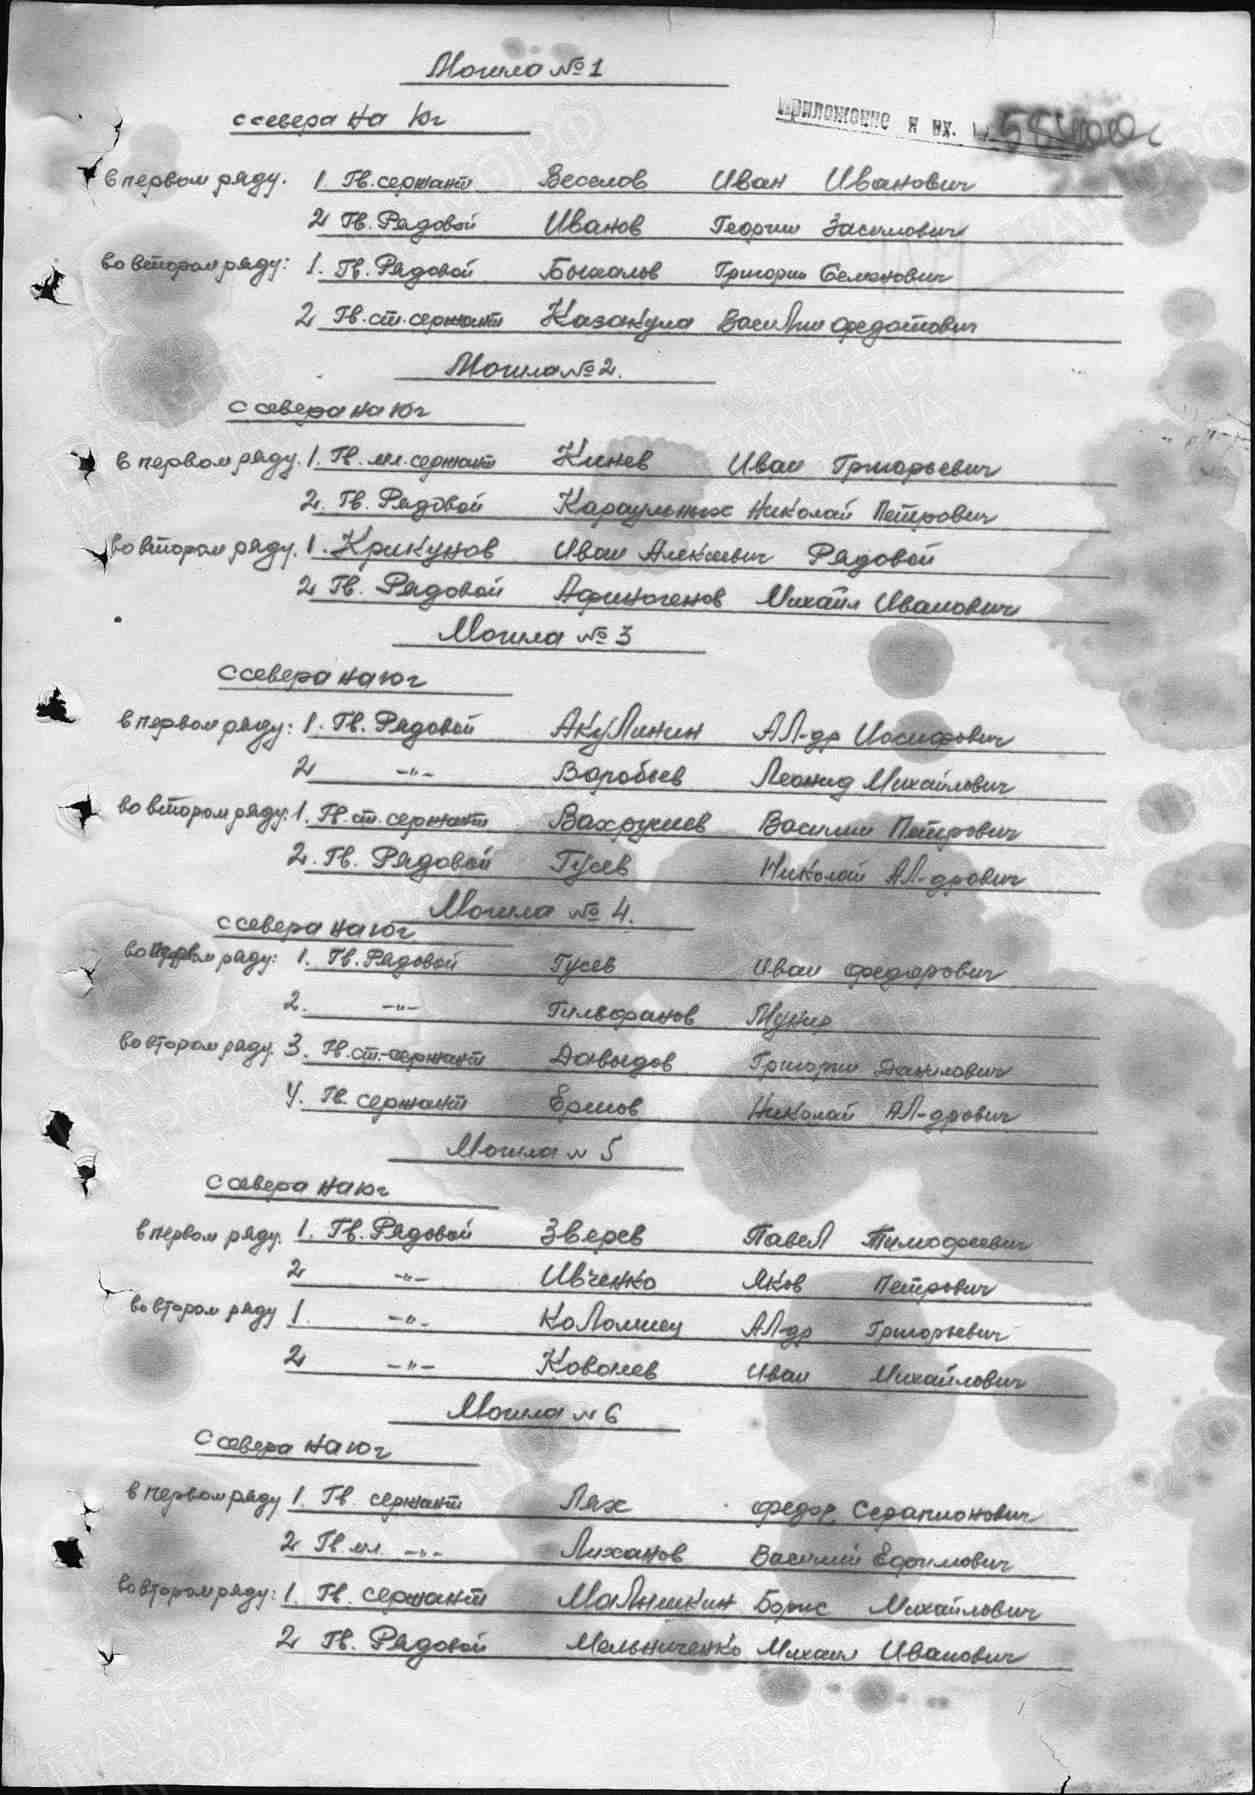 Могила №1
с севера на Юг
Приложение к вх.
в первом ряду. 1 Гв. сержант Веселов Иван Иванович
2 Гв. Рядовой Иванов Георгий Засимович
во втором ряду: 1. Гв. Рядовой Григорий Семенович
2 Гв. ст. сержант Казакула Василий Федотович
Могила №2.
с севера на юг
в первом ряду. 1. Гв. мл. сержант Кинев Иван Григорьевич
2. Гв. Рядовой Караульных Николай Петрович
во втором ряду. 1. Крикунов Иван Алексеевич Рядовой
2 Гв. Рядовой Афиногенов Михайл Иванович
Могила №3
с севера на юг
в первом ряду: 1. Гв. Рядовой Акулинин Ал-др Иосифович
2 -"- Воробьев Леонид Михайлович
во втором ряду: 1. Гв. ст. сержант Вахрушев Василий Петрович
2. Гв. Рядовой Гусев Николай Ал-дрович
Могила №4.
с севера на юг
ряду: 1. Гв. Рядовой Гусев Иван Федорович
2. -"- Гильфанов Мунир
во втором ряду. 3. Гв. ст. сержант Давыдов Григорий Данилович
4. Гв. сержант Ершов Николай Ал-дрович
Могила № 5
с севера на юг
в первом ряду. 1. Гв. Рядовой Зверев Павел Тимофеевич
2 -"- Ивченко Яков Петрович
во втором ряду 1. -"- Коломиец Ал-др Григорьевич
2 -"- Ковалев Иван Михайлович
Могила № 6
с севера на юг
в первом ряду 1. Гв. сержант Лях Федор Серапионович
2 Гв. мл. -"- Лиханов Василий Ефимович
во втором ряду: 1. Гв. сержант Малышкин Борис Михайлович
2 Гв. Рядовой Мельниченко Михаил Иванович